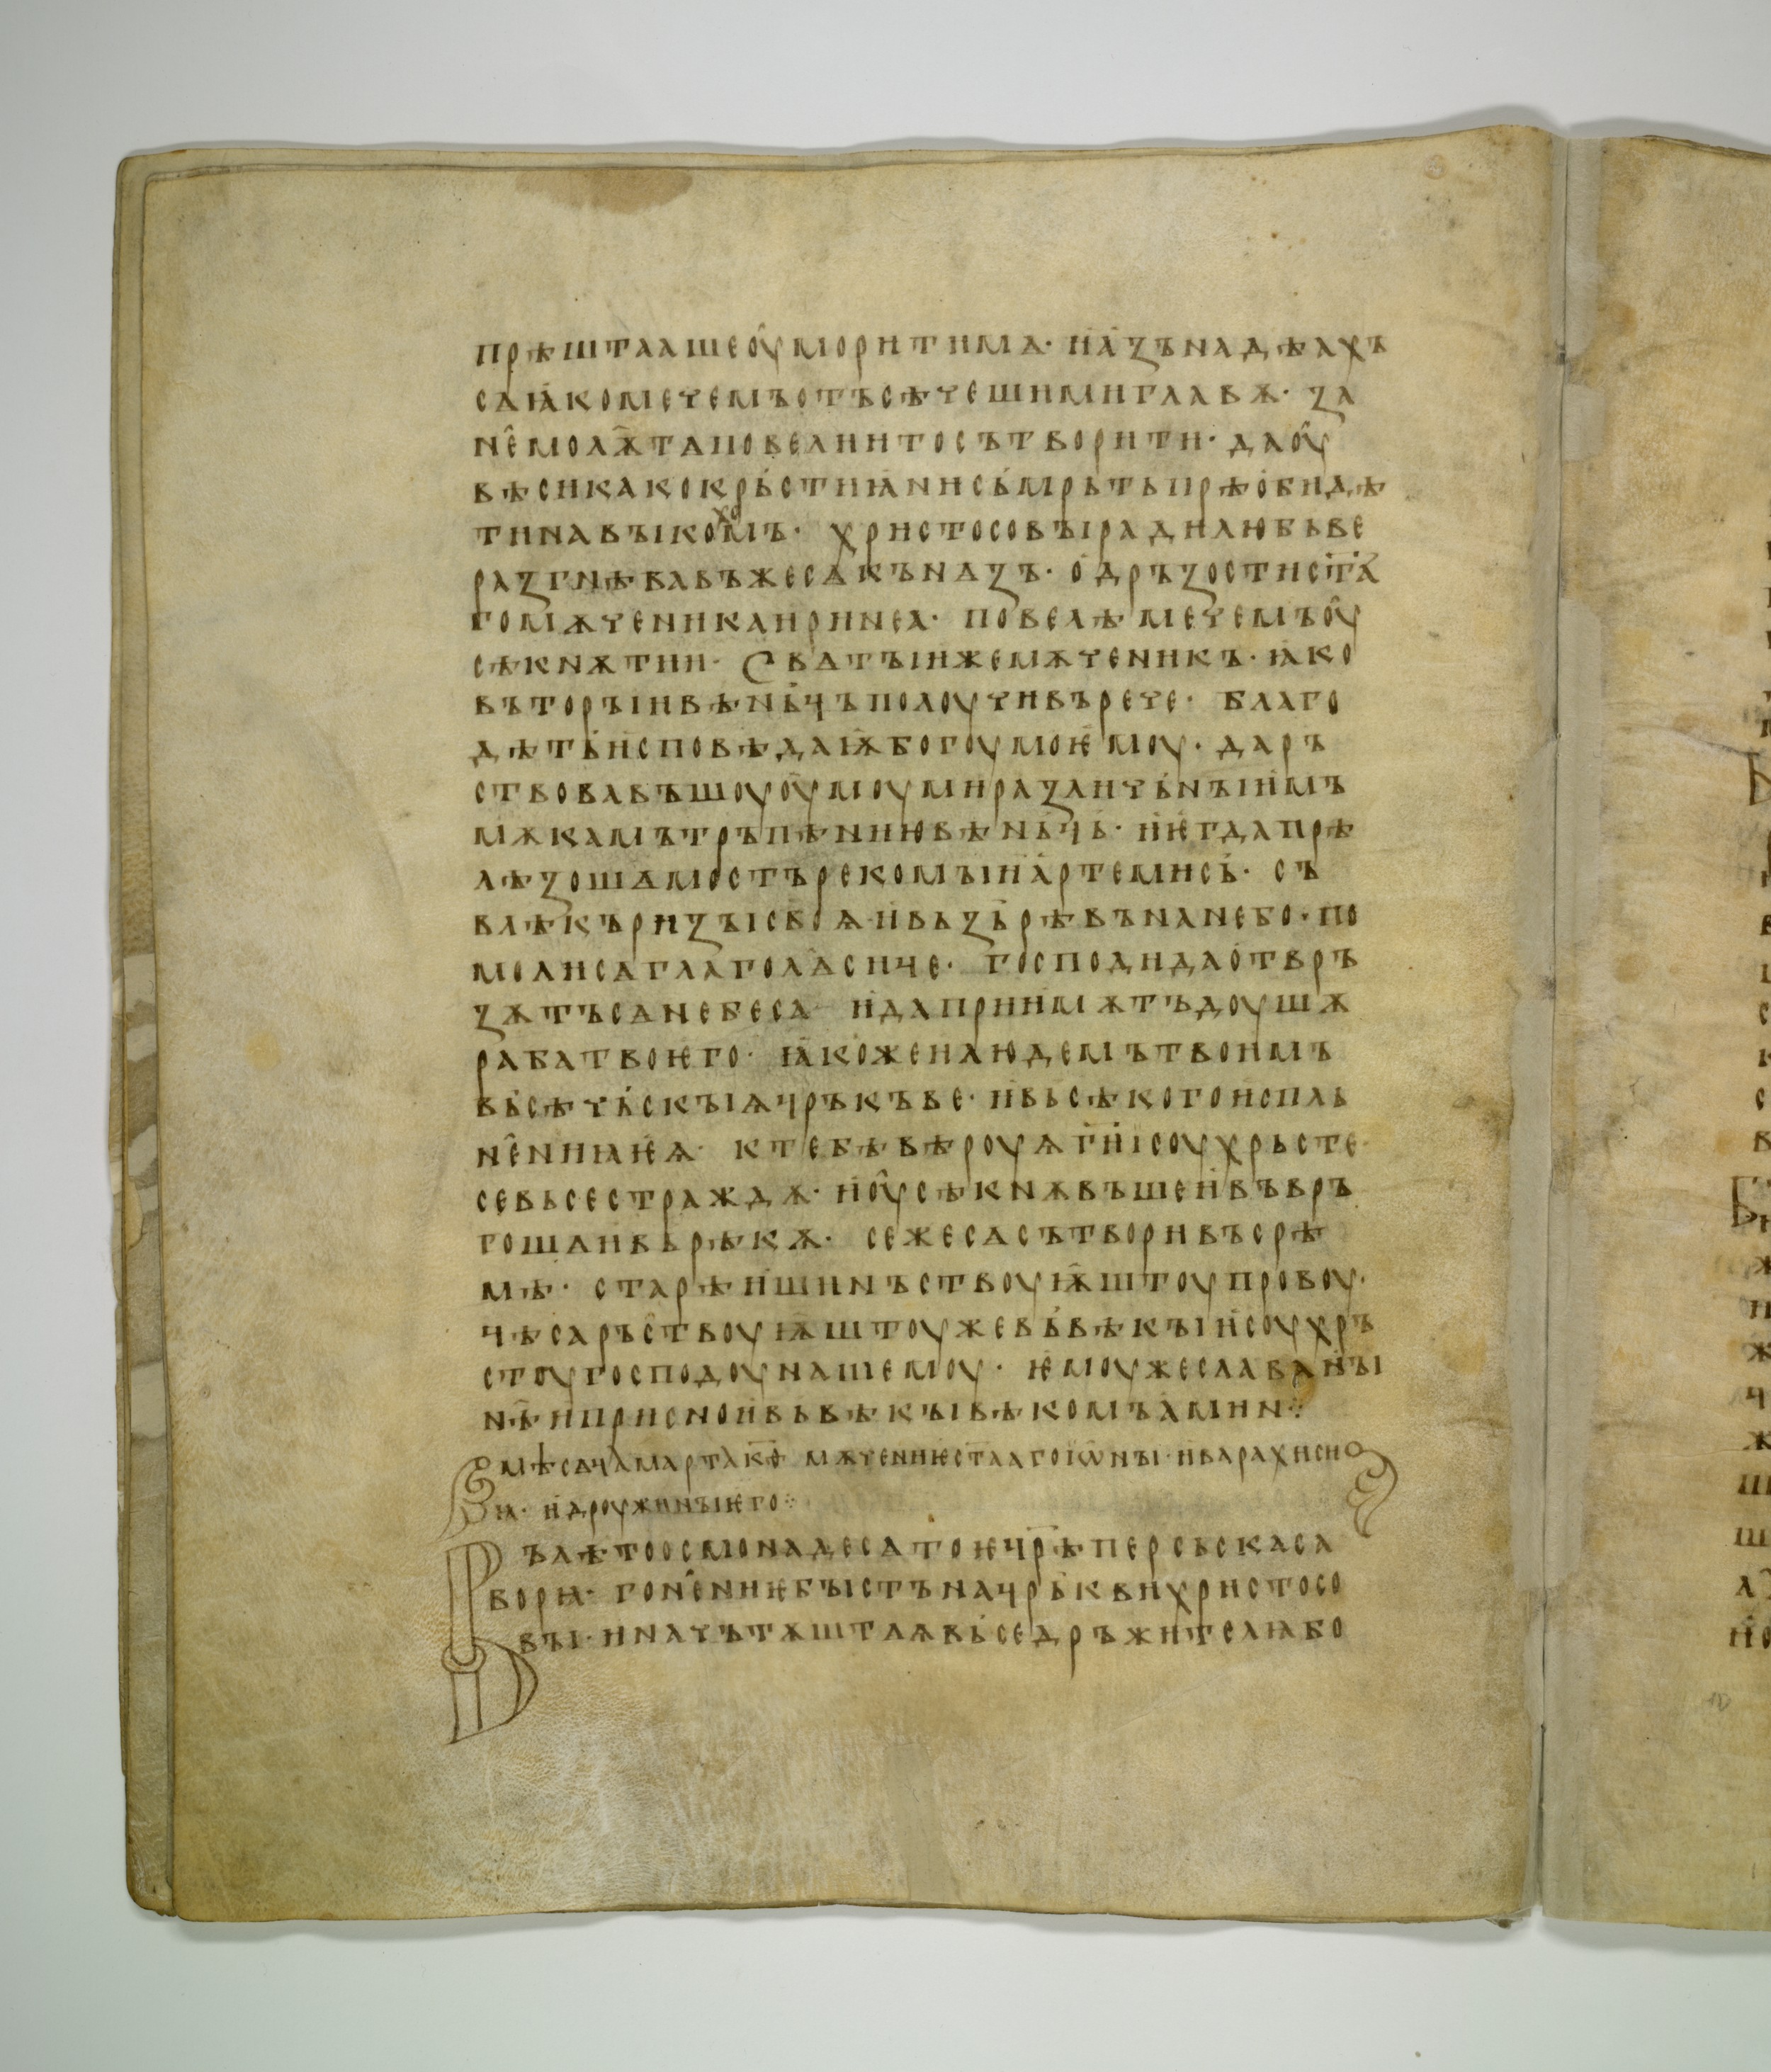 прѣштаашеоу҆моритимѧ· и҆а҆зънадѣахъ
сѧꙗ҆комечемъотъсѣчешимиглавѫ· за
не҆молѭ҆тѧповелиитосътворити· даоу҆
вѣсикакокрь҆стиꙗ҆нисъ҆мрьтьпрѣо҆бидѣ
тинавыкохомъ· христосовырадилюбъве
разгнѣвавъжесѧкънѧзъ· о҆дръзостист҃а҆
гомѫченикаиринеа· повелѣмечемъоу҆
сѣкнѫтии· Свѧтыижемѫченикъ· ꙗ҆ко
въторыивѣнь҆цъполоучивърече· благо
дѣтьи҆сповѣдаѭ҆богоумоѥ҆моу· даръ
ствовавъшоуоу҆моумиразличь҆ныи҆мъ
мѫкамътръпѣниювѣнь҆ць· и҆ѥ҆гдапрѣ
лѣзошѧмостърекомыиа҆ртемисъ҆· съ
влѣкъризысвоѩ·и҆вьзь҆рѣвънанебо·по
молисѧглаголѧ҆сице· господидао҆твръ
зѫтъсѧнебеса и҆даприи҆мѫтъдоушѫ
рабатвоѥго· ꙗ҆коженлюдемътвоимъ
вь҆сѣчь҆скыѩцръкъве· и҆вьсѣкогои҆спль
не҆ниꙗѥ҆ѩ· ктебѣвѣроуѩг҃и҆і҆соухрьсте·
севьсестраждѫ· и҆оу҆сѣкнѫвъшеи҆въвръ
гошѧивърѣкѫ· сежесѧсътворивъсрѣ
мѣ· старѣи҆шинъствоуѭ҆штоупровоу·
цѣсаръс҆твоуѭ҆штоужевь҆вѣкыи҆соухръ
стоугосподоунашемоу· ѥ҆моужеславаи҆ны
нѣ҆иприснои҆вьвѣкывѣкомъа҆мин⁘
мѣсѧцамартак҃ѳ мѫчениѥст҃ааго·іѡ҆ны·и҆варахиси҆
ꙗ· и҆дроужиныѥго⁘
Вълѣтоосмонадесѧтоѥц҃рѣперсьскаса
вориꙗ· гоне҆ниѥбыстънацръ҆квихристосо
вы·иначѧтъѫштаѧвь҆седръжителꙗбо